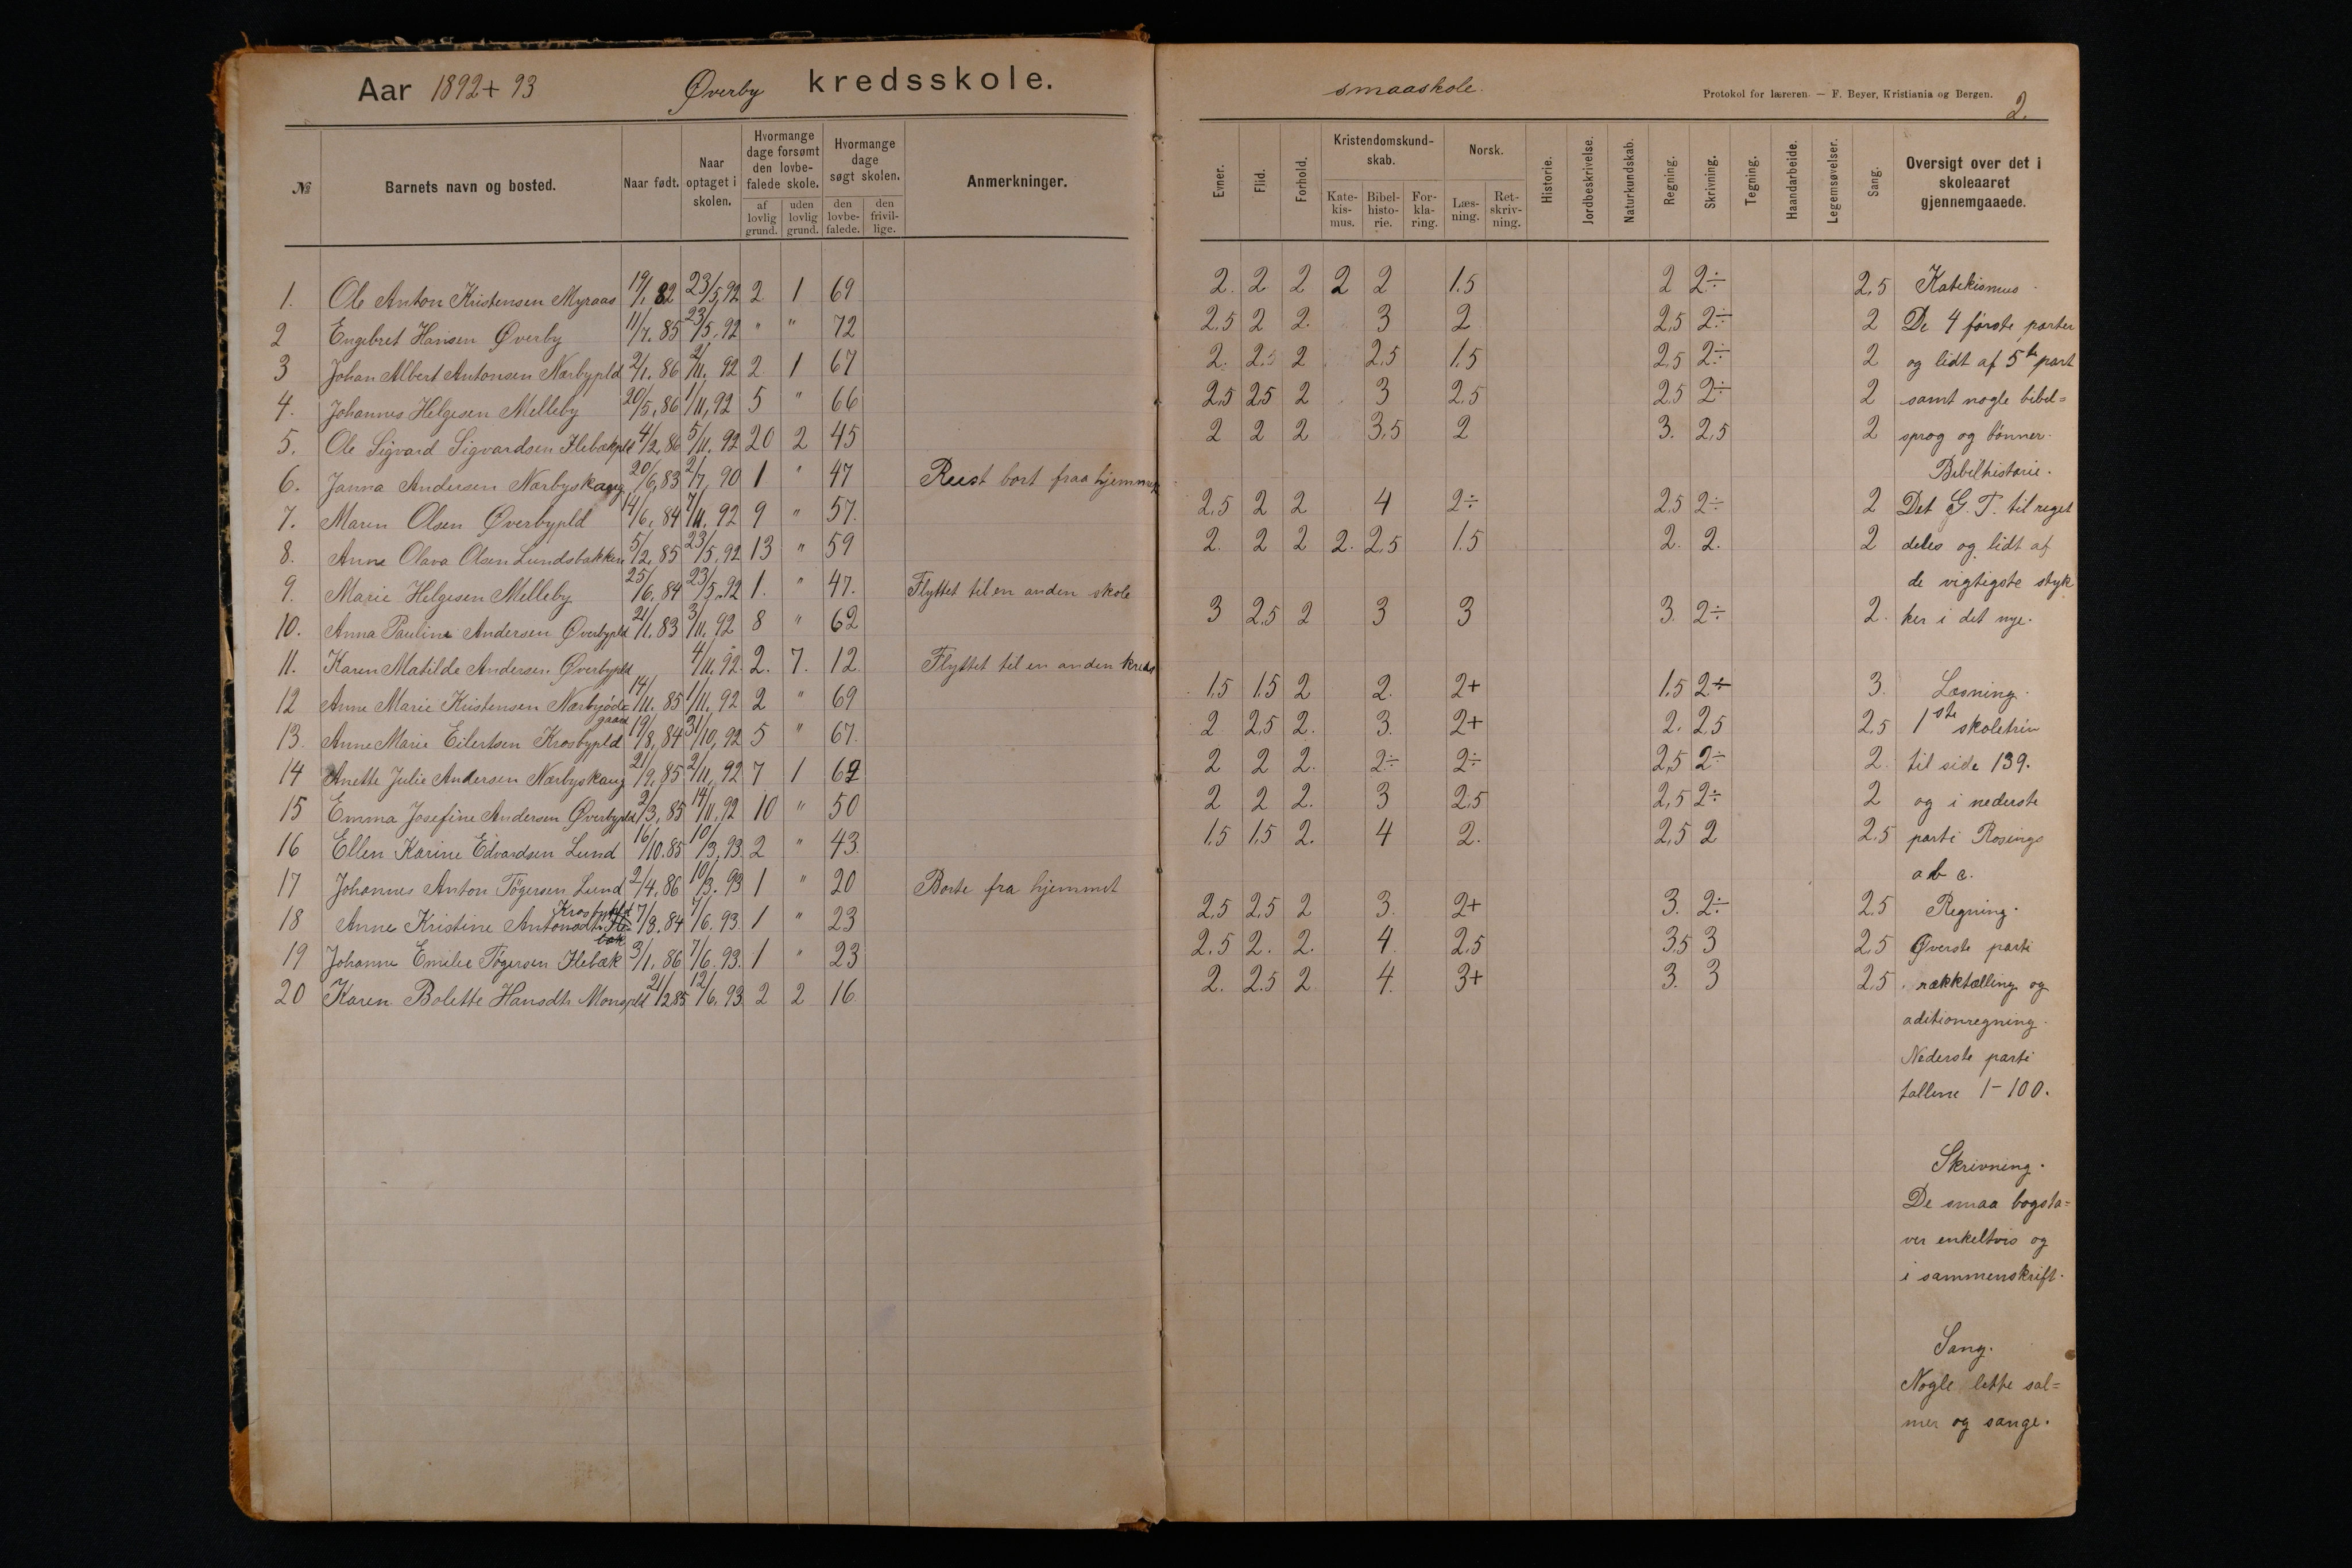 Aar 1892+93 Øverby kredsskole.
№ Barnets navn og bosted. Naar født. Naar optaget i skolen. Hvormange dage forsømt den lovbefalede skole. af lovlig grund. uden lovlig grund. Hvormange dage søgt skolen. den lovbefalede. den frivillige. Anmerkninger.
1. Ole Anton Kristensen Myraas 19/1. 82 23/5, 92 2 1 69
2 Engebret Hansen Øverby 11/7. 85 23/5. 92 " " 72
3 Johan Albert Antonsen Nærbypld 2/1. 86 2/11. 92 2 1 67
4. Johannes Helgesen Melleby 20/5, 86 1/11, 92 5 " 66
5. Ole Sigvard Sigvardsen Ilebækpld 4/2, 86 5/11. 92 20 2 45
6. Janna Andersen Nærbyskaug 20/6, 83 2/7, 90 1 " 47 Reist bort fraa hjemmet
7. Maren Olsen Øverbypld 14/6, 84 7/11. 92 9 " 57.
8. Anne Olava Olsen Lundsbakken 5/2, 85 23/5. 92 13 " 59
9. Marie Helgesen Melleby 25/6. 84 23/5. 92 1. " 47. Flyttet til en anden skole
10. Anna Pauline Andersen Øverbypld 21/1. 83 3/11. 92 8 " 62
11. Karen Matilde Andersen Øverbypld 4/11. 92 2. 7. 12 Flyttet til en anden kreds
12 Anne Marie Kristensen Nærbyødegaard 14/11. 85 1/11. 92 2 " 69
13. Anne Marie Eilertsen Krosbypld 19/8, 84 31/10, 92 5 " 67.
14 Anette Julie Andersen Nærbyskaug 21/9, 85 2/11, 92 7 1 62
15 Emma Josefine Andersen Øverbypld 2/3, 85 14/11. 92 10 " 50
16 Ellen Karine Edvardsen Lund 16/10. 85 10/3, 93 2 " 43
17 Johannes Anton Tögersen Lund 2/4, 86 10/3. 93 1 " 20 Borte fra hjemmet
Krosbypld
18 Anne Kristine Antonsdtr. 7/3. 84 7/6. 93. 1 " 23
19 Johanne Emilie Tögersen Ilebæk 3/1, 86 7/6. 93. 1 " 23
20 Karen Bolette Hansdtr. 21/12 85 12/6. 93 2 2 16
smaaskole.
Protokol for læreren. — F. Beyer, Kristiania og Bergen.
2.
Evner. Flid. Forhold. Kristendomskundskab. Katekismus. Bibelhistorie. Forklaring. Norsk. Læsning. Retskrivning. Historie. Jordbeskrivelse. Naturkundskab. Regning. Skrivning. Tegning. Haandarbeide. Legemsøvelser. Sang. Oversigt over det i skoleaaret gjennemgaaede.
2. 2 2 2 2 1.5 2 2÷ 2,5 Katekismus.
2.5 2 2. 3 2 2,5 2÷ 2 De 4 første parter
2. 2.5 2 2,5 1.5 2,5 2÷ 2 og lidt af 5te part
2,5 2,5 2 3 2.5 2.5 2÷ 2 samt nogle bibel=
2 2 2 3.5 2 3. 2,5 2 sprog og bønner.
Bibelhistorie.
2,5 2 2 4 2÷ 2.5 2÷ 2 Det G. T. til riget
2. 2 2 2. 2.5 1.5 2. 2. 2 deles og lidt af
de vigtigste styk
3 2,5 2 3 3 3. 2÷ 2. ker i det nye.
1.5 1.5 2 2. 2+ 1.5 2÷ 3. Læsning.
2 2,5 2. 3. 2+ 2. 2,5 2,5 1ste skoletrin
2 2 2. 2÷ 2÷ 2,5 2÷ 2. til side 139.
2 2 2. 3 2.5 2,5 2÷ 2 og i nederste
1.5 1.5 2. 4 2. 2,5 2 2.5 parti Rosings
a b c.
2.5 2,5 2 3. 2+ 3. 2÷ 2.5 Regning.
2.5 2. 2. 4. 2.5 3,5 3 2,5 Øverste parti
2. 2.5 2 4. 3+ 3. 3 2,5 rækktælling og
aditionregning.
Nederste parti
tallene 1-100.
Skrivning.
De smaa bogsta=
ver enkeltvis og
i sammenskrift.
Sang.
Nogle lette sal=
mer og sange.